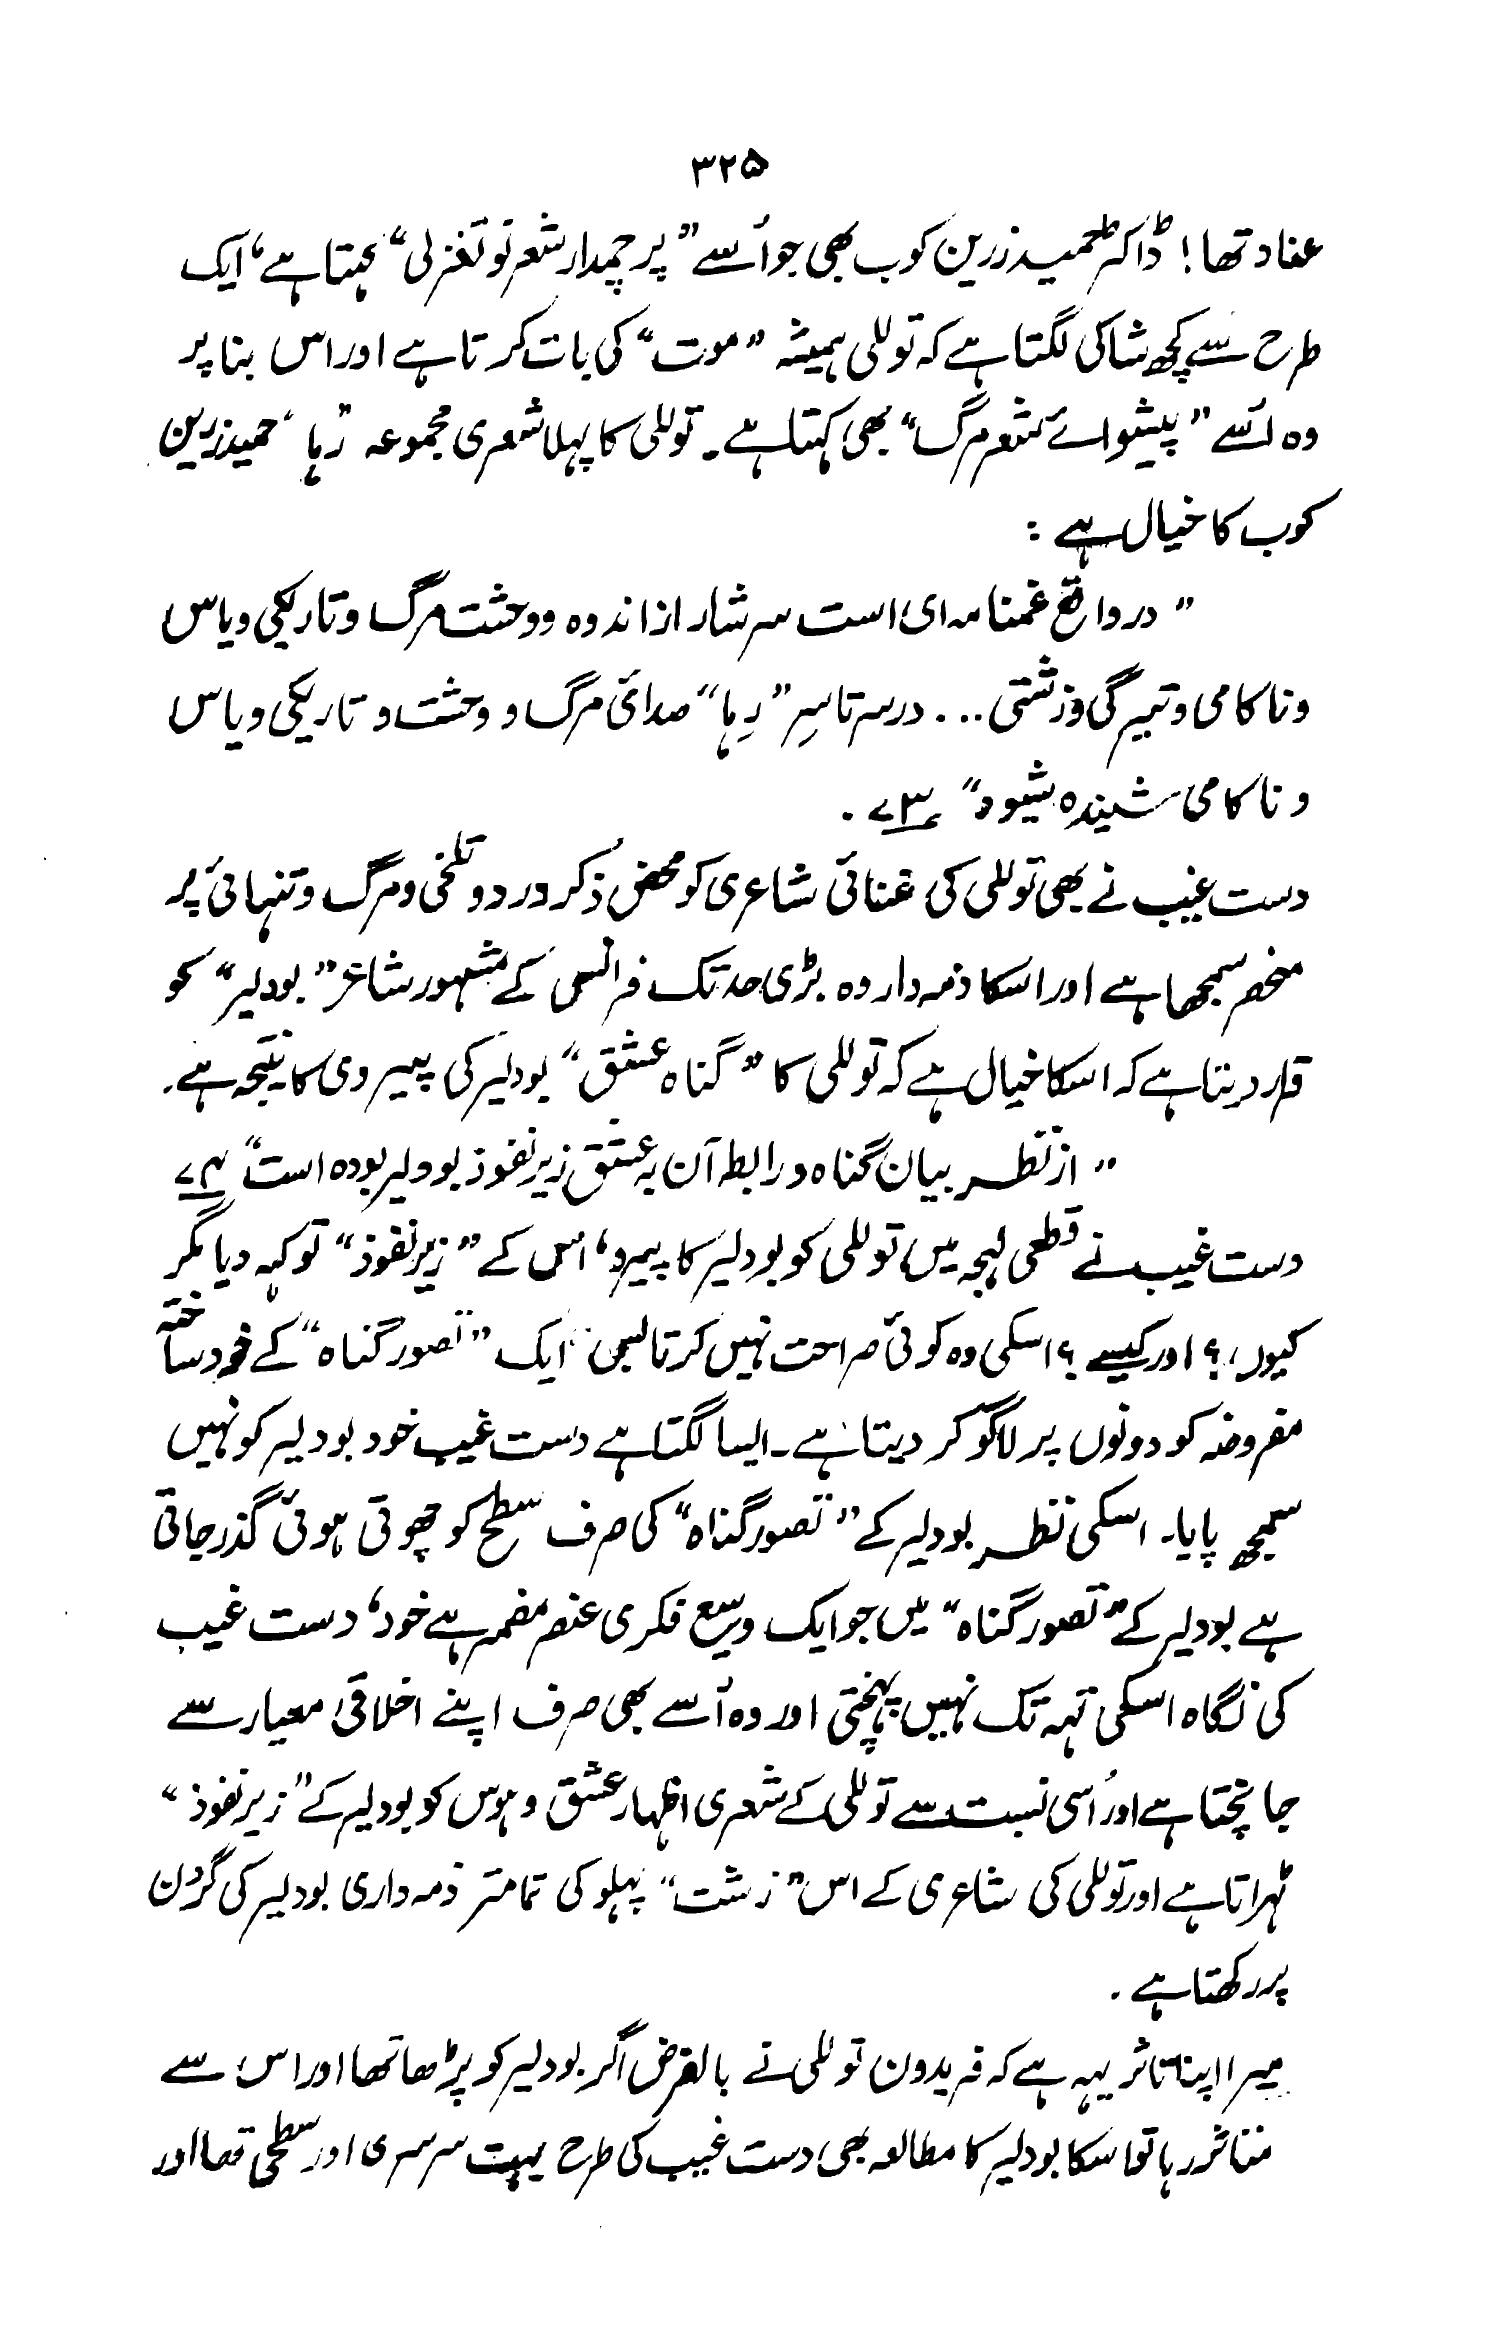 ۳۲۵
عناد تھا! ڈاکٹر حمید زرین کوب بھی جو اُسے ”پرچمدار شعر نو تغزلی“ کہتا ہے، ایک
طرح سے کچھ شاکی لگتا ہے کہ توللی ہمیشہ ”موت“ کی بات کرتا ہے اور اس بنا پر
وہ اُسے ”پیشوائے شعر مرگ“ بھی کہتا ہے۔ توللی کا پہلا شعری مجموعہ ”رہا‘ حمید زرین
کوب کا خیال ہے :
”در واقع غمنامہ ای است سرشار از اندوہ و وحشت مرگ و تاریکی و یاس
و ناکامی و تیرگی و زشتی ... در سرتاسِر ”رِہا“ صدائ مرگ و وحشت و تاریکی و یاس
و ناکامی شیندہ شیود“ ۷۳۔
دست غیب نے بھی توللی کی غنائی شاعری کو محض ذکر درد و تلخی و مرگ و تنہائی پر
منحصر سمجھا ہے اور اسکا ذمہ دار وہ بڑی حد تک فرانس کے مشہور شاعر ”بودلیر“ کو
قرار دیتا ہے کہ اسکا خیال ہے کہ توللی کا ”گناہ عشق“ بودلیر کی پیروی کا نتیجہ ہے۔
”از نظر بیان گناہ و رابط آن بہ عشق زیر نفوذ بودلیر بودہ است“ ۷۴
دست غیب نے قطعی لہجہ میں توللی کو بودلیر کا پیرو، اس کے ”زیر نفوذ“ تو کہہ دیا مگر
کیوں؟ اور کیسے؟ اسکی وہ کوئی صراحت نہیں کرتا بس ایک ”تصور گناہ“ کے خود ساختہ
مفروضہ کو دونوں پر لاگو کر دیتا ہے۔ ایسا لگتا ہے دست غیب خود بودلیر کو نہیں
سمجھ پایا۔ اسکی نظر بودلیر کے ”تصور گناہ“ کی صرف سطح کو چھوتی ہوئی گذر جاتی
ہے بودلیر کے ”تصور گناہ“ میں جو ایک وسیع فکری عنصر مضمر ہے خود، دست غیب
کی نگاہ اسکی تہہ تک نہیں پہنچتی اور وہ اُسے بھی صرف اپنے اخلاقی معیار سے
جانچتا ہے اور اُسی نسبت سے توللی کے شعری اظہار عشق و ہوس کو بودلیر کے ”زیر نفوذ“
ٹہراتا ہے اور توللی کی شاعری کے اس ”زشت“ پہلو کی تمامتر ذمہ داری بودلیر کی گردن
پر رکھتا ہے۔
میرا اپنا تاثر یہہ ہے کہ فریدون توللی نے بالفرض اگر بودلیر کو پڑھا تھا اور اس سے
متاثر رہا تو اسکا بودلیر کا مطالعہ بھی دست غیب کی طرح بہت سرسری اور سطحی تھا اور